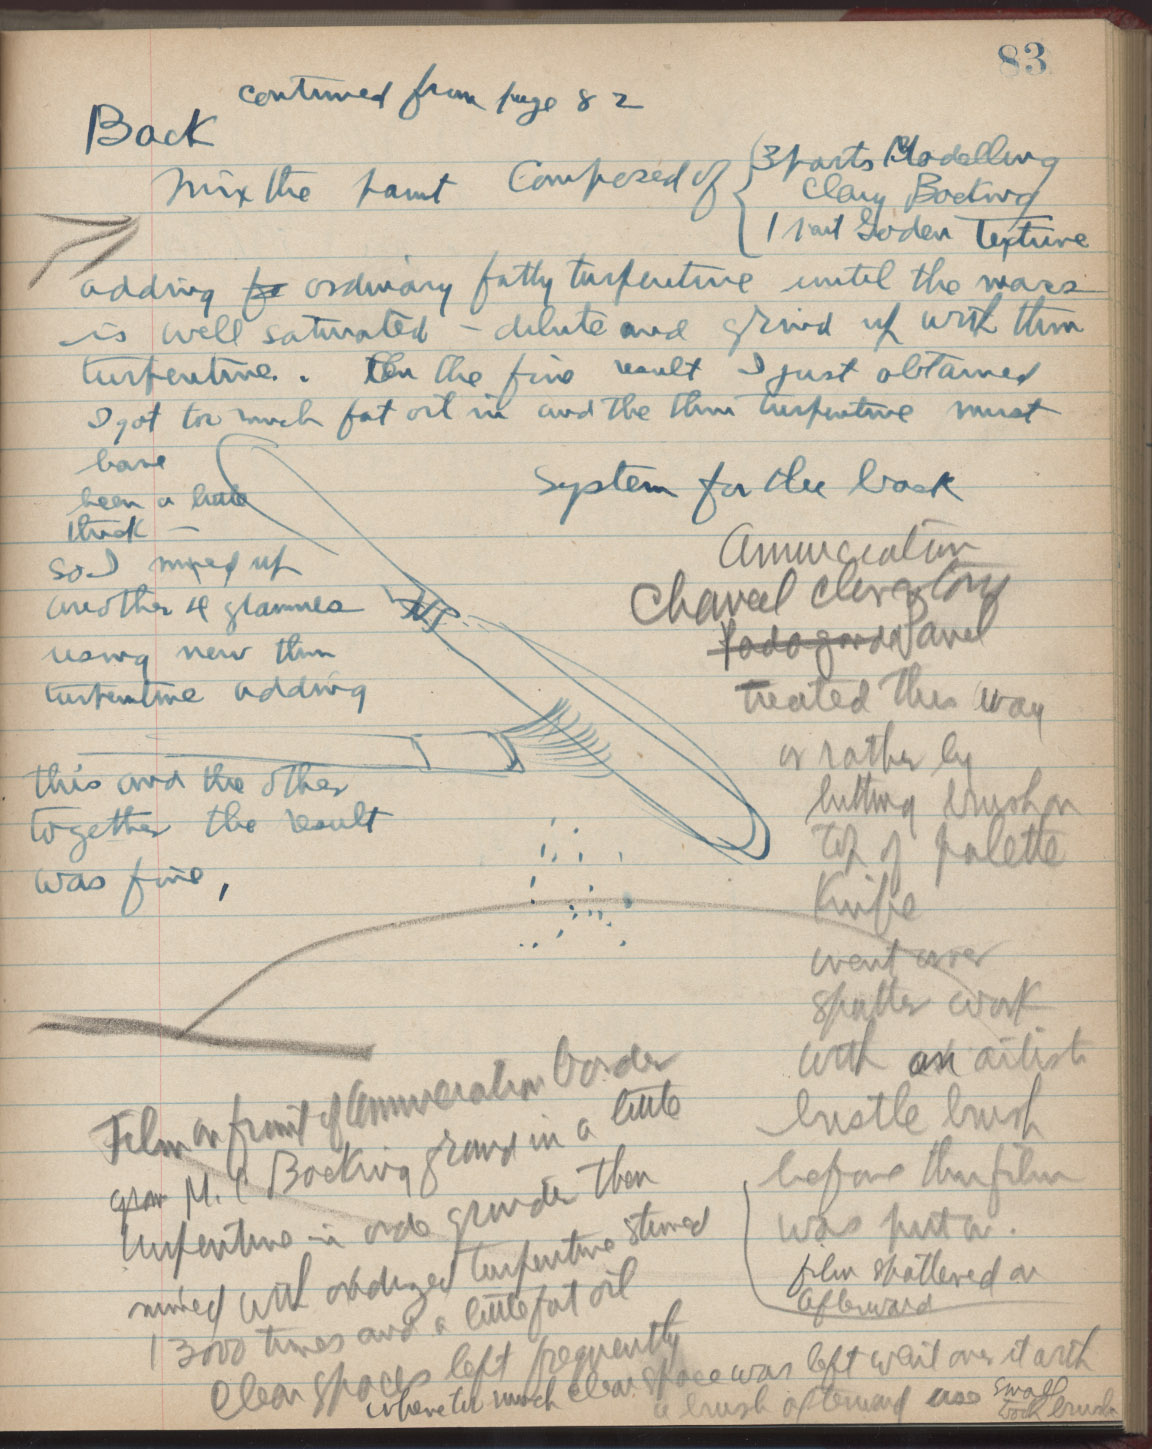 83
continued from page 82
Back
Mix the paint Composed of
3 parts Modelling
Clay Backing
1 part Golden Texture
adding ordinary fatty turpentine until the mass
is well saturated – dilute and grind up with thin
turpentine. the fine result I just obtained
I got too much fat oil in and the thin turpentine must
have
been a little
thick –
So I mixed up
another 4 grammes
using new thin
turpentine adding
this and the other
together the result
was fine,
System for the back
Annunciation
Chancel Clerestory
Panel
treated this way
or rather by
hitting brush on
top of palette
Knife
went over
spatter work
with an artist
bristle brush
before thin film
was put on.
film spattered on
afterward
Film on front of Annunciation border
M. C Backing ground in a little
turpentine in grinder then
mixed with oxidized turpentine stirred
13000 times and a little fat oil
Clear spaces left frequently
where too much clear space was left went over it with
a brush afterward use small
brush